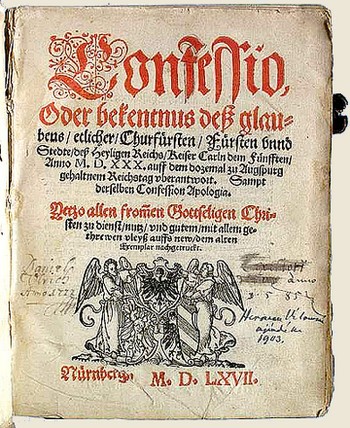 Confessio,
Oder bekentnus deß glau-
bens / etlicher / Churfürsten / Fürsten vnnd
Stedte / deß Heyligen Reichs / Keiser Carln dem Fünfften /
Anno M. D. XXX. auff dem dozemal zu Augspurg
gehaltnem Reichstag vberantwort. Sampt
derselben Confession Apologia.
Yetzo allen fromen Gottseligen Chri-
sten zu dienst / nutz / vnd gutem / mit allem ge-
threwen vleyß auffs new / dem alten
Exemplar nachgetruckt.
Anno
1585
1903.
Nürnberg, M. D. LXVII.